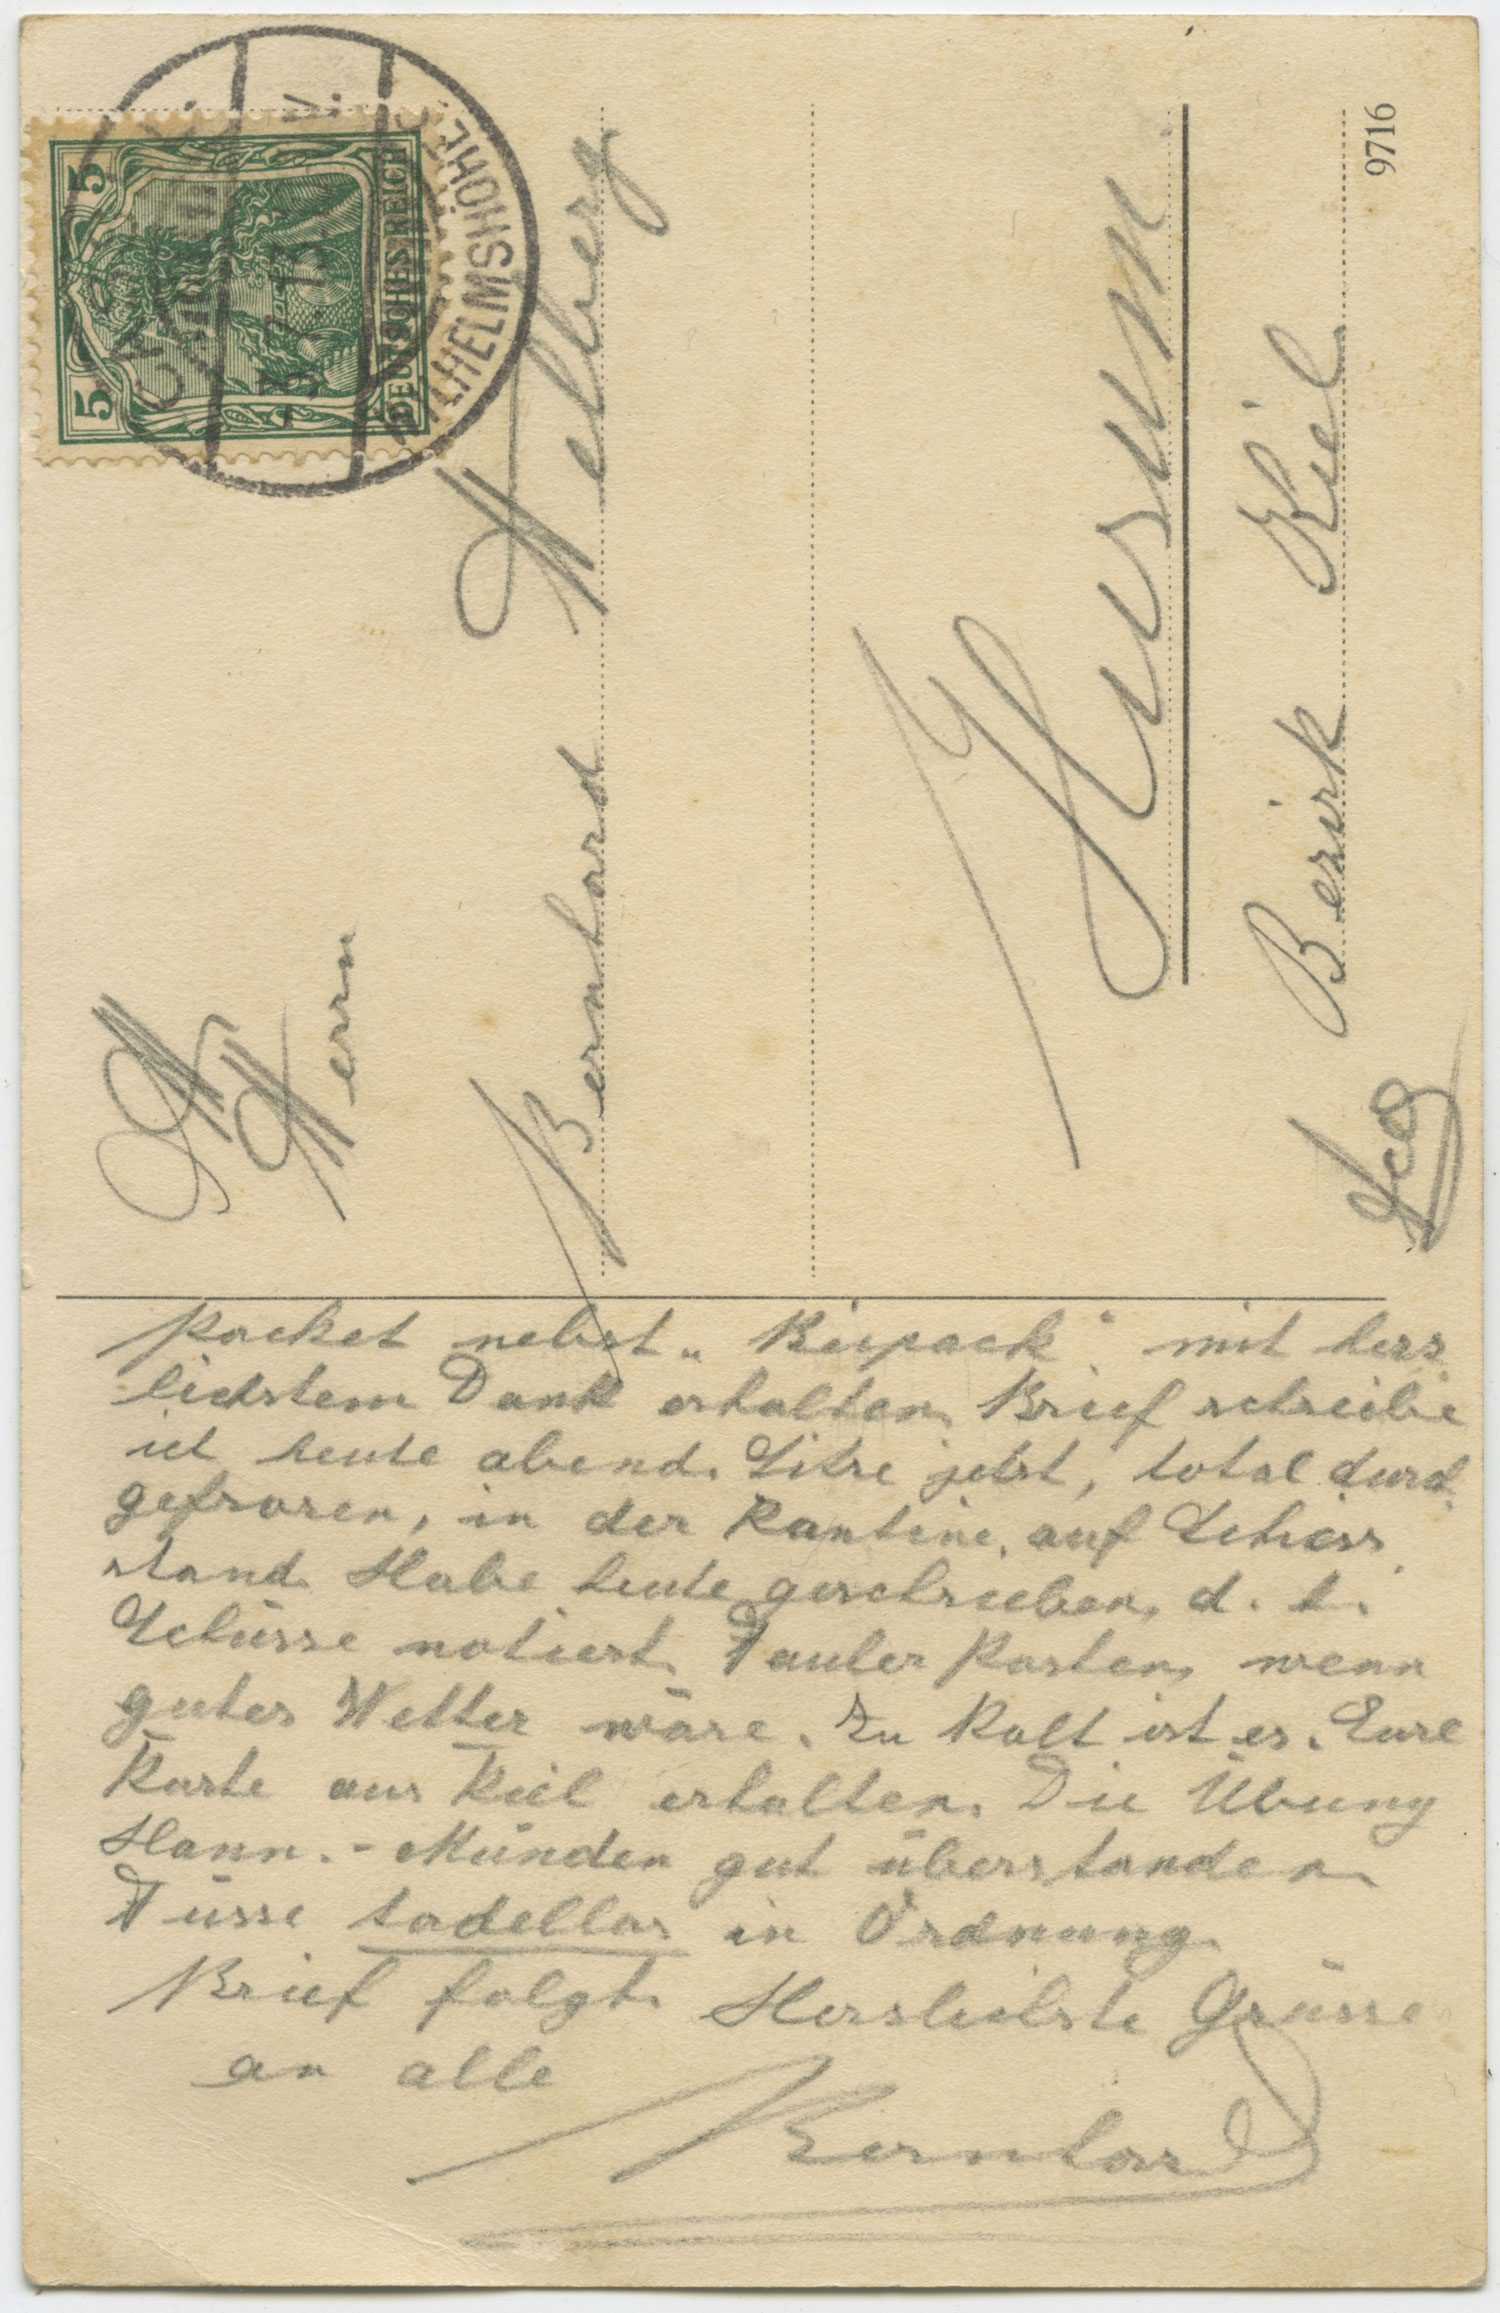 5 5
DEUTSCHES REICH
CASSEL
WILHELMSHÖHE
9716
Herrn
Bernhard Helberg
Husum
Bezirk Kiel
Packet nebst „Beipack“ mit herz
lichstem Dank erhalten. Brief schreibe
ich heute abend. Sitze jetzt, total durch
gefroren, in der Kantine auf Schiess
stand. Habe heute geschrieben, d. h.
Schüsse notiert. Fauler Posten, wenn
gutes Wetter wäre. Zu kalt ist es. Eure
Karte aus Kiel erhalten. Die Übung
Hann.-Münden gut überstanden
Füsse tadellos in Ordnung.
Brief folgt. Herzlichste Grüsse
an alle
Bernhard